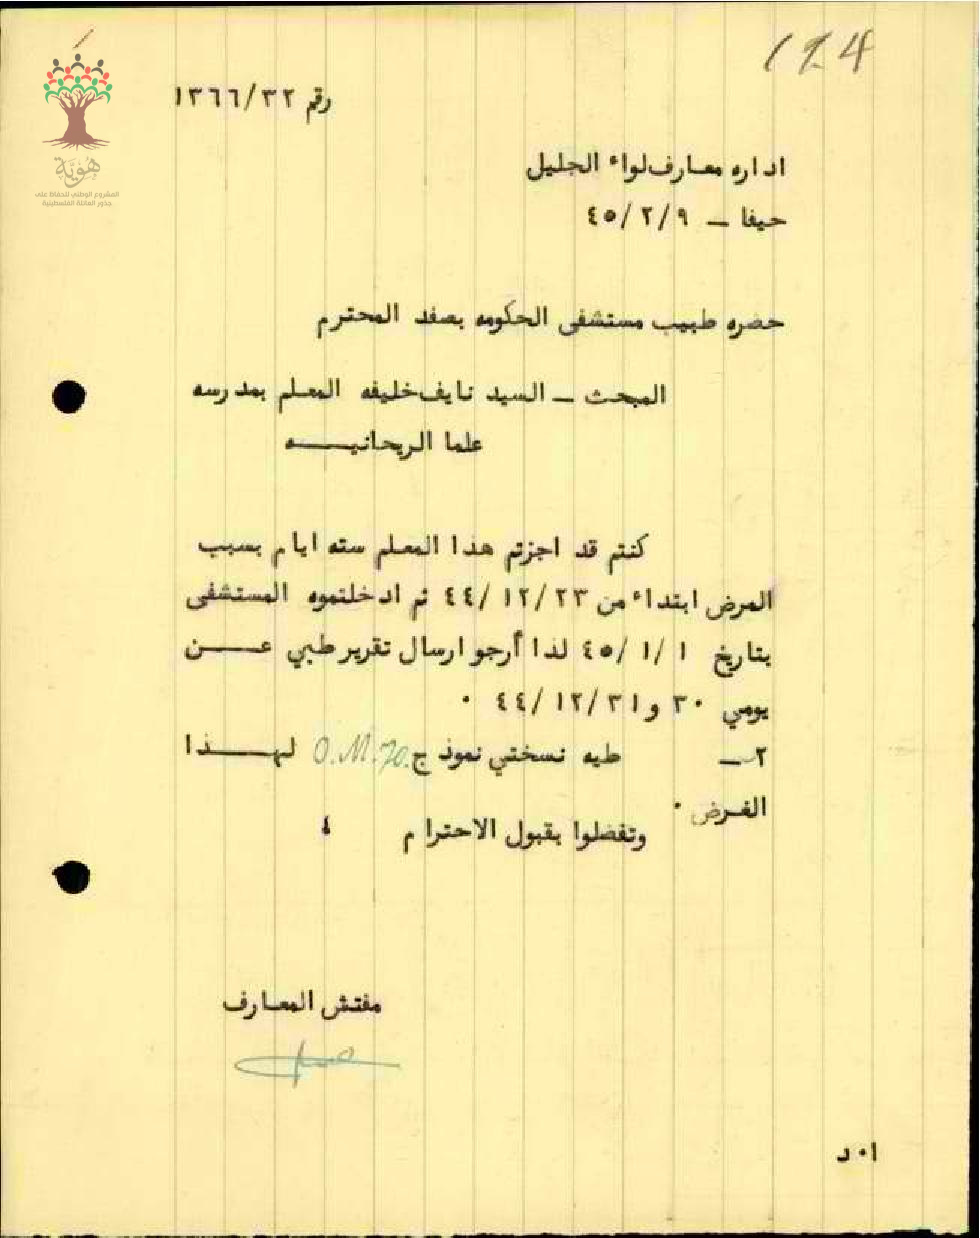 124
رقم ١٣٦٦/٣٢
هُوِيَّة
المشروع الوطني للحفاظ على
جذور العائلة الفلسطينية
اداره معارف لواء الجليل
حيفا – ٤٥/٢/٩
حضره طبيب مستشفى الحكومه بصفد المحترم
المبحث – السيد نايف خليفه المعلم بمدرسه
علما الريحانيـــه
كنتم قد اجزتم هذا المعلم سته ايام بسبب
المرض ابتداء من ٤٤/١٢/٢٣ ثم ادخلتموه المستشفى
بتاريخ ٤٥/١/١ لذا أرجو ارسال تقرير طبي عـــن
يومي ٣٠ و ٤٤/١٢/٣١ ٠
٢– طيه نسختي نموذج O.M.70. لهـــذا
الغرض ٠
وتفضلوا بقبول الاحترام ،
مفتش المعارف
ا٠د